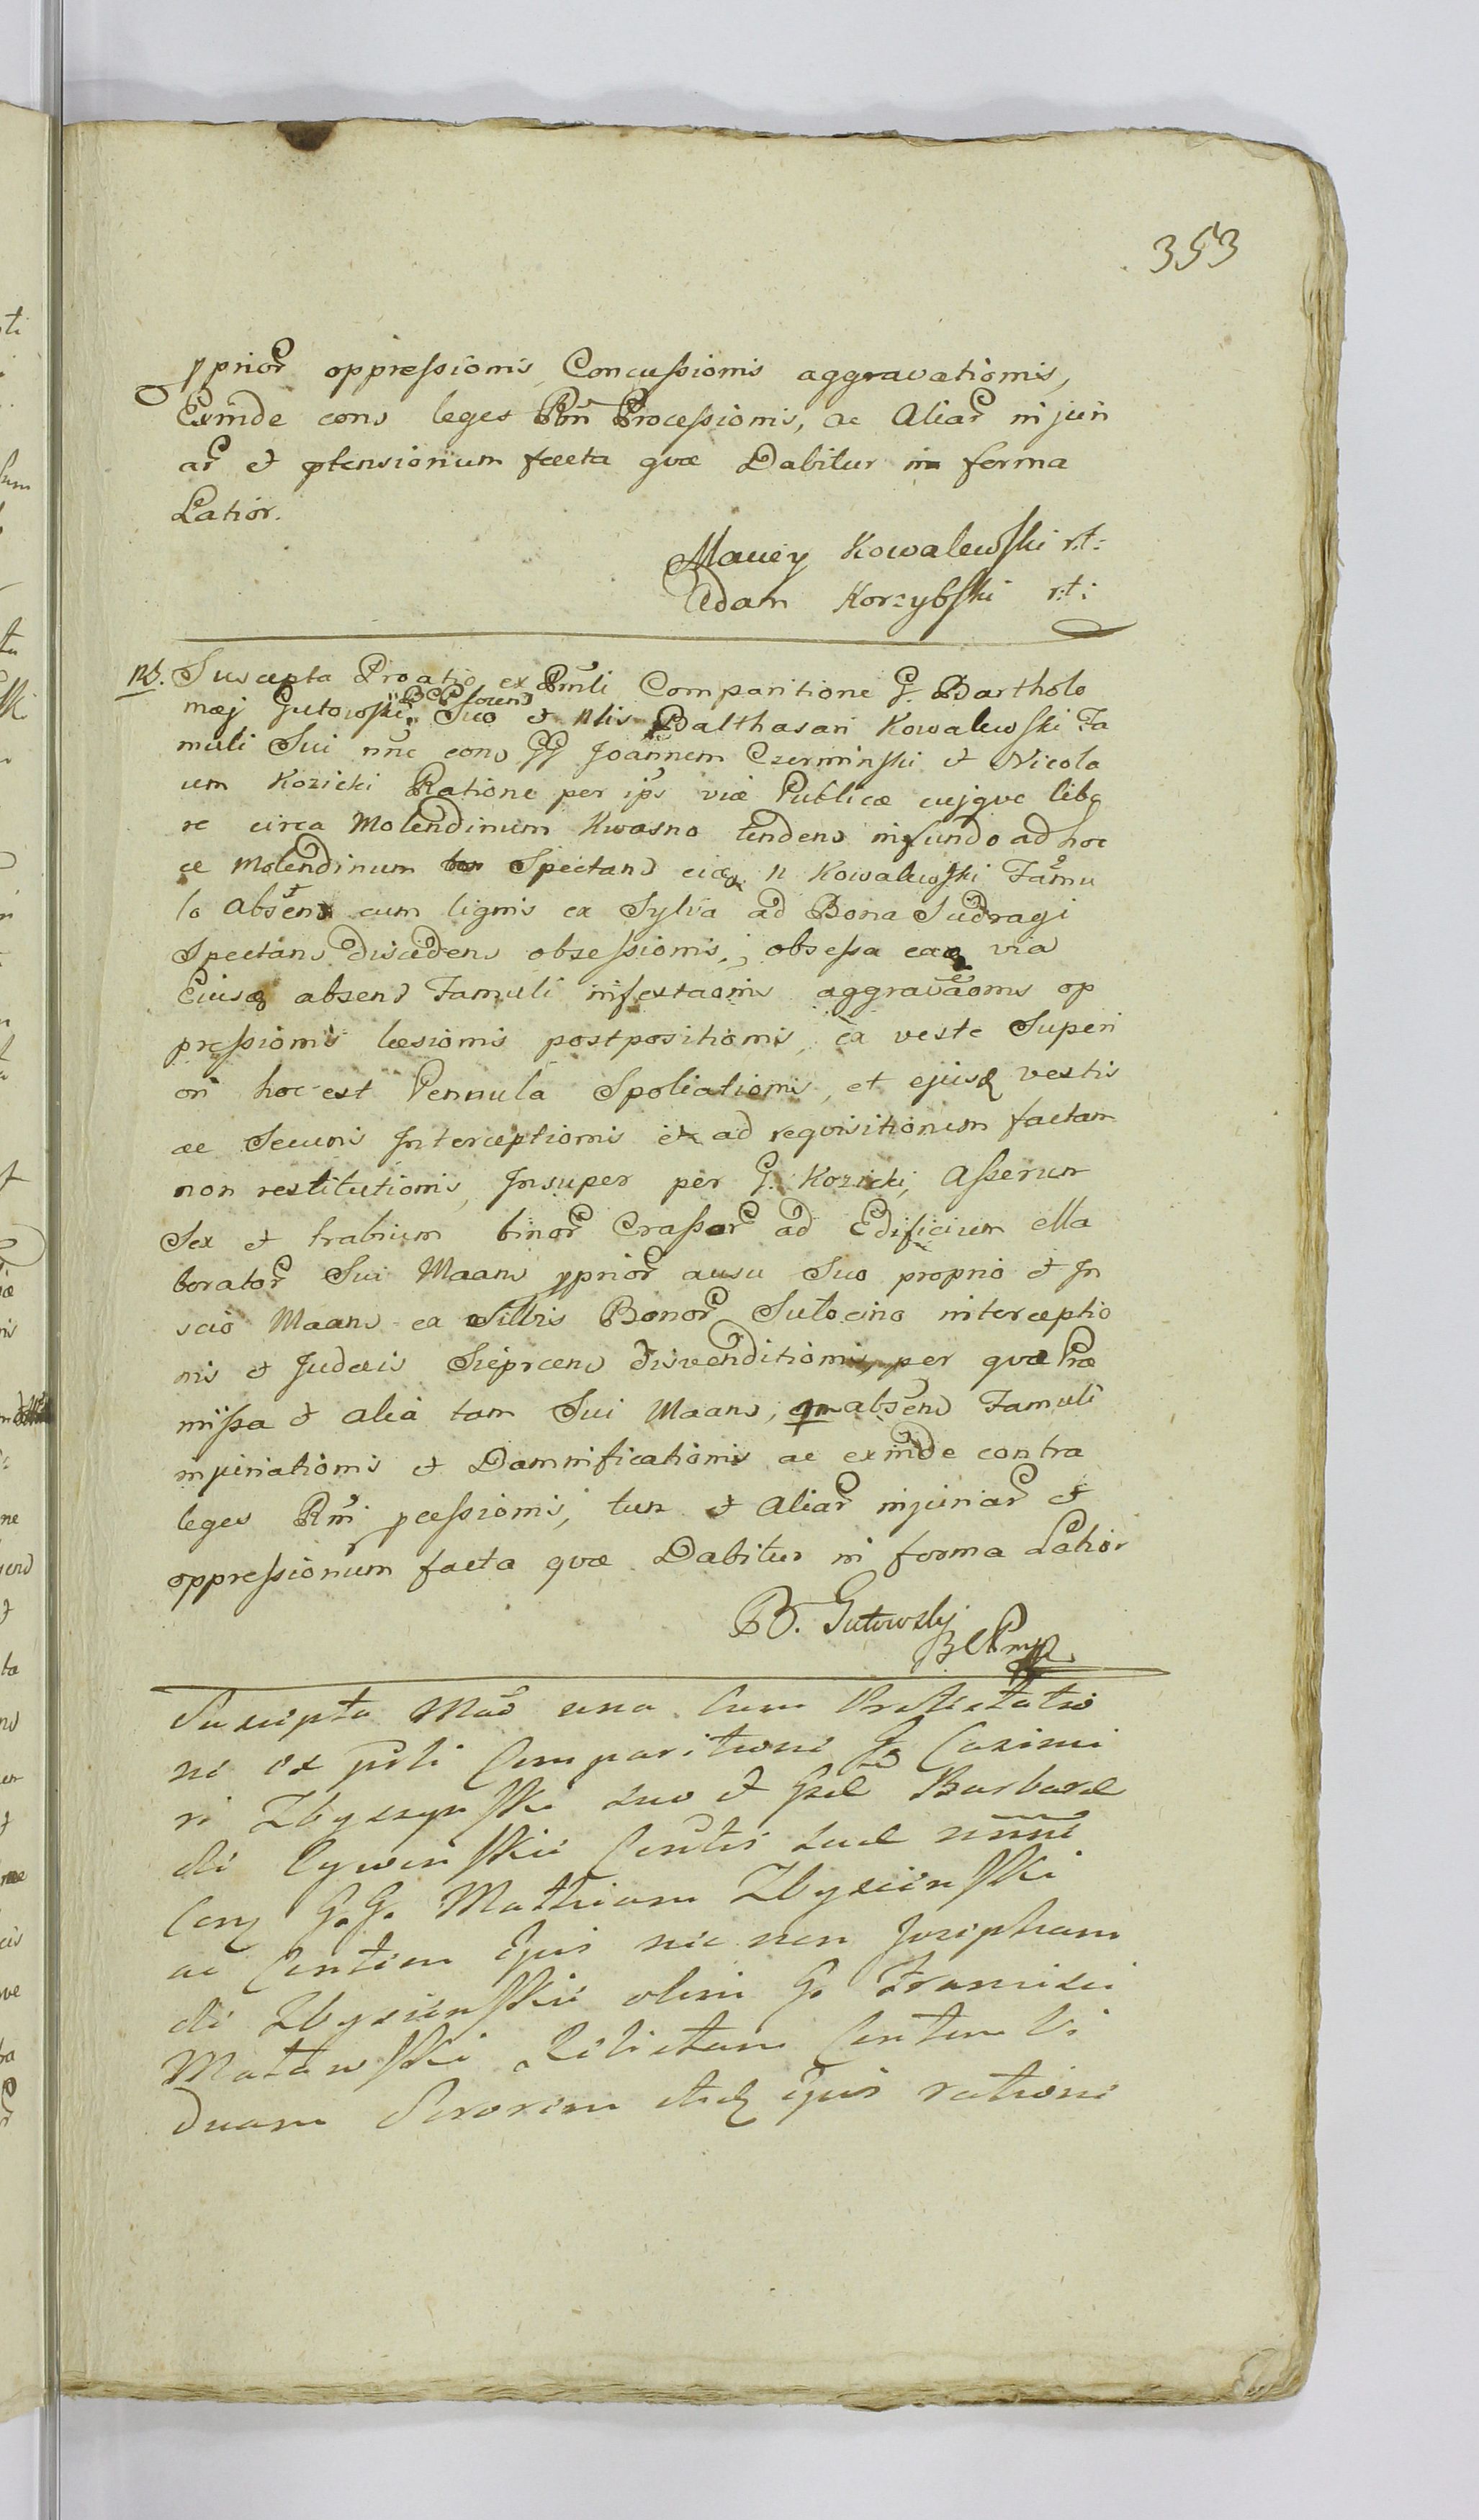 353
pprior oppressionis, Concussionis aggravationis,
Exinde cons leges Rñi Processionis, ac Aliar injuri
ar et ptensionum facta qvæ Dabitur in forma
Latior.
Maciey Kowalewski r.t:
Adam Korzybski r:t:
NB. Suscepta Proatio ex Pnnli Comparitione G. Bartholo
mæj Gutowski Suo et Nlis Balthasari Kowalewski Fa
muli Sui nnē cons GG Joannem Czerminski et Nicola
um Kozicki Ratione per ips viæ Publicæ cujqve libe
re circa Molendinum Kwasno tendens in fundo ad hoc
ce Molendinum Spectans N Kowalewski Famu
lo absens cum lignis ex Sylva ad Bona Sudragi
Spectans discedens obsessionis, obsessa eaq via
Eiusq absens Famuli infestaonis aggravāōnis op
pressionis læsionis postpositionis, ex veste Superi
ori hoc est Pennula Spoliationis, et ejusd vestis
ac Securis Interceptionis et ad reqvisitionem factam
non restitutionis, Insuper per G. Kozicki, Asserum
Sex et trabium binor Crassor ad Edificium ella
borator Sui Maans pprior ausu Suo proprio et In
scio Maans ex Silvis Bonor Sutocino interceptio
nis et Judæis Sieprcens disvenditionis, per qvæ Præ
missa et alia tam Sui Maans, qm absens Famuli
injuriationis et Damnificationis ac exinde contra
leges Rñi pcessionis, tum et Aliar injuriar et
oppressionum facta qvæ Dabitur in forma Latior
B. Gutowsky
Suscepta Maō una cum Protestatio
ne ex pñti Comparitione G. Casimi
ri Zbyszynski suo et Gsæ Barbaræ
de Cywinskie Contis suæ nnnē
Conz G.G. Mathiam Zbysiinski
ac Contem Ejus nec non Josepham
de Zbysiinskie olim G. Francisci
Matowski Relictam Contem Vi
duam Sororem etid Ejus ratione